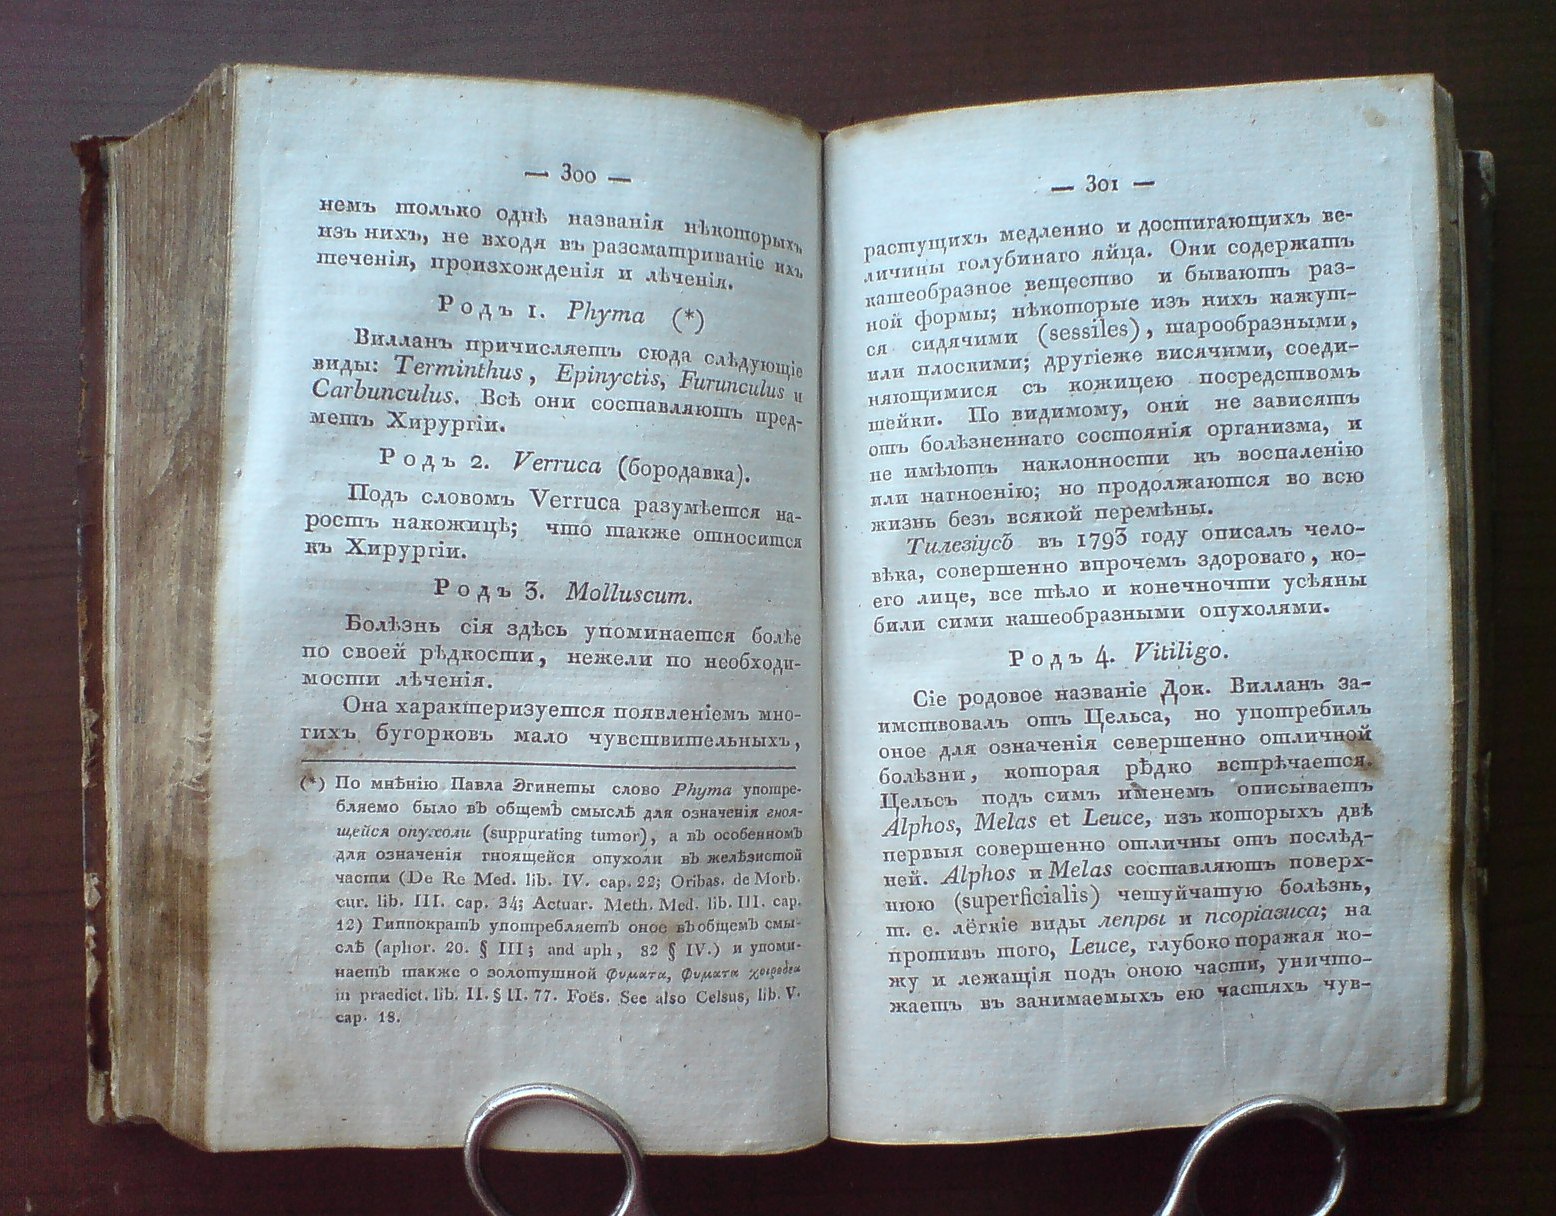 — 300 —
немъ только однѣ названія нѣкоторыхъ
изъ нихъ, не входя въ разсматриваніе ихъ
теченія, произхожденія и лѣченія.
Родъ 1. Phyma (*)
Вилланъ причисляетъ сюда слѣдующіе
виды: Terminthus, Epinyctis, Furunculus и
Carbunculus. Всѣ они составляютъ пред-
метъ Хирургіи.
Родъ 2. Verruca (бородавка).
Подъ словомъ Verruca разумѣется на-
ростъ накожицѣ; что также относится
къ Хирургіи.
Родъ 3. Molluscum.
Болѣзнь сія здѣсь упоминается болѣе
по своей рѣдкости, нежели по необходи-
мости лѣченія.
Она характеризуется появленіемъ мно-
гихъ бугорковъ мало чувствительныхъ,
(*) По мнѣнію Павла Эгинеты слово Phyma употре-
бляемо было въ общемъ смыслѣ для означенія гноя-
щейся опухоли (suppurating tumor), а въ особенномъ
для означенія гноящейся опухоли въ желѣзистой
части (De Re Med. lib. IV. cap. 22; Oribas. de Morb.
cur. lib. III. cap. 34; Actuar. Meth. Med. lib. III. cap.
12) Гиппократъ употребляетъ оное въ общемъ смы-
слѣ (aphor. 20. § III; and aph, 82 § IV.) и упоми-
наетъ также о золотушной φυματα, φυματα χοιροδεα
in praedict. lib. II. § II. 77. Foës. See also Celsus, lib. V.
cap. 18.
— 301 —
растущихъ медленно и достигающихъ ве-
личины голубинаго яйца. Они содержатъ
кашеобразное вещество и бываютъ раз-
ной формы; нѣкоторые изъ нихъ кажут-
ся сидячими (sessiles), шарообразными,
или плоскими; другіеже висячими, соеди-
няющимися съ кожицею посредствомъ
шейки. По видимому, они не зависятъ
отъ болѣзненнаго состоянія организма, и
не имѣютъ наклонности къ воспаленію
или нагноенію; но продолжаются во всю
жизнь безъ всякой перемѣны.
Тилезіусъ въ 1793 году описалъ чело-
вѣка, совершенно впрочемъ здороваго, ко-
его лице, все тѣло и конечночти усѣяны
били сими кашеобразными опухолями.
Родъ 4. Vitiligo.
Сіе родовое названіе Док. Вилланъ за-
имствовалъ отъ Цельса, но употребилъ
оное для означенія совершенно отличной
болѣзни, которая рѣдко встрѣчается.
Цельсъ подъ симъ именемъ описываетъ
Alphos, Melas et Leuce, изъ которыхъ двѣ
первыя совершенно отличны отъ послѣд-
ней. Alphos и Melas составляютъ поверх-
нюю (superficialis) чешуйчатую болѣзнь,
т. е. лёгкіе виды лепры и псоріазиса; на
противъ того, Leuce, глубоко поражая ко-
жу и лежащія подъ оною части, уничто-
жаетъ въ занимаемыхъ ею частяхъ чув-